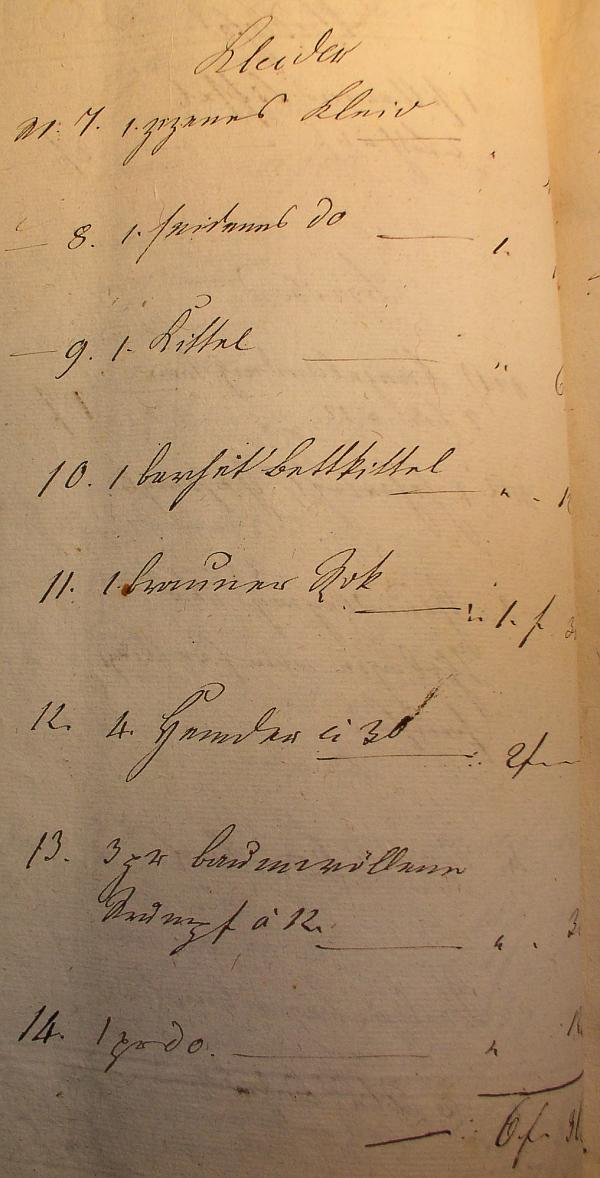 Kleider
N. 7. 1. zizenes Kleid "
8. 1. seidenes do 1.
9. 1. Kittel "
10. 1 Bettkittel "
11. 1. brauner Rok 1. f
12. 4. Hemder à 30 2f
13. 3 pr baumwöllene
Strümpf à 12. "
14. 1 pr do. "
6 f.